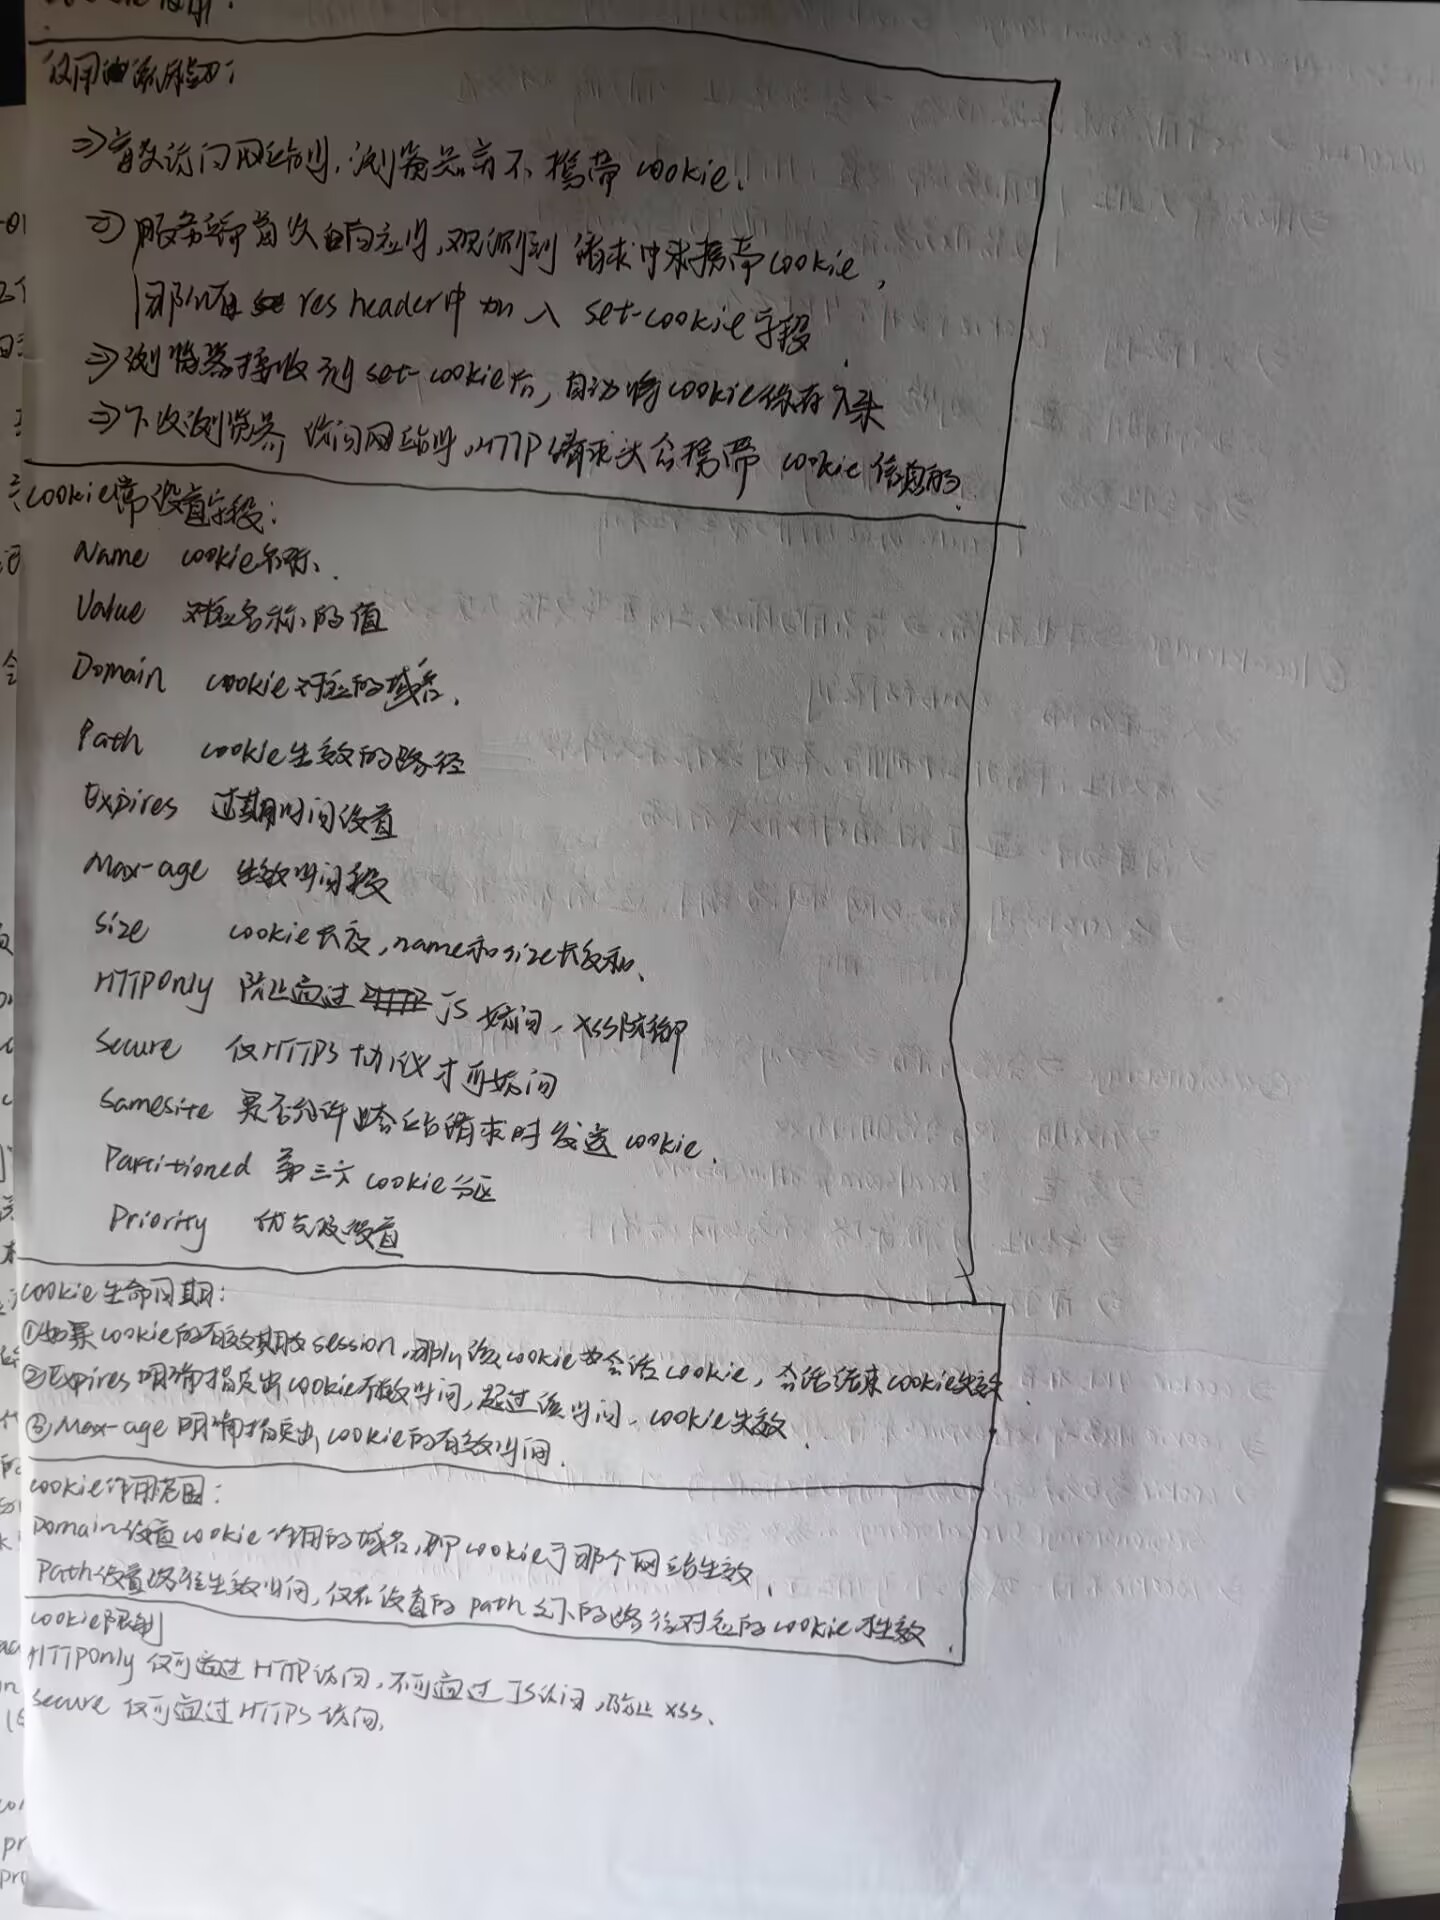 使用流程:
=> 首次访问网站时,浏览器前不携带cookie.
=> 服务端首次响应时,观测到 请求中未携带cookie,
那么在 res header中加入 set-cookie字段.
=> 浏览器接收到set-cookie后,自动将cookie保存下来
=> 下次浏览器 访问网站时,HTTP请求头会携带 cookie信息的.
cookie常设置字段:
Name cookie名称.
Value 对应名称的值
Domain cookie对应的域名.
Path cookie生效的路径
Expires 过期时间设置
Max-age 生效时间段
Size cookie长度,name和size长度和.
HTTPOnly 防止通过 JS 访问,XSS防御
Secure 仅HTTPS协议才可访问
Samesite 是否允许跨站请求时发送cookie.
Partitioned 第三方cookie分区
Priority 优先级设置
cookie生命周期:
①如果cookie的有效期为session,那么该cookie为会话cookie,会话结束cookie失效.
②Expires 明确指定出cookie有效时间,超过该时间,cookie失效.
③Max-age 明确指定出cookie的有效时间.
cookie作用范围:
Domain设置cookie作用的域名,即cookie于那个网站生效.
Path设置路径生效时间,仅在设置的path之下的路径对应的cookie才生效.
cookie限制
HTTPOnly 仅可通过HTTP访问,不可通过JS访问,防止XSS.
Secure 仅可通过HTTPS访问.